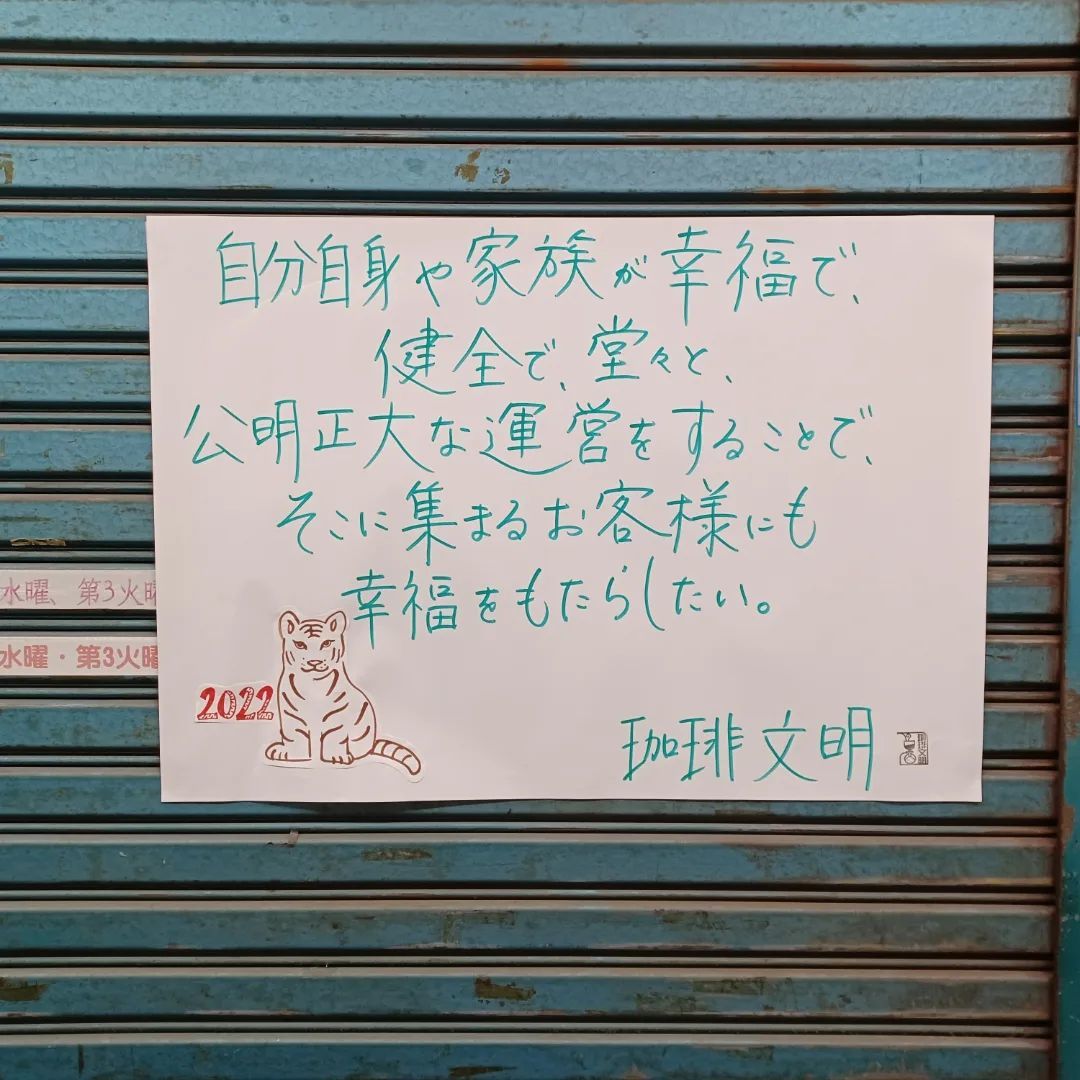 自分自身や家族が幸福で、
健全で、堂々と、
公明正大な運営をすることで、
そこに集まるお客様にも
幸福をもたらしたい。
水曜、第3火曜
水曜・第3火曜
2022
珈琲文明